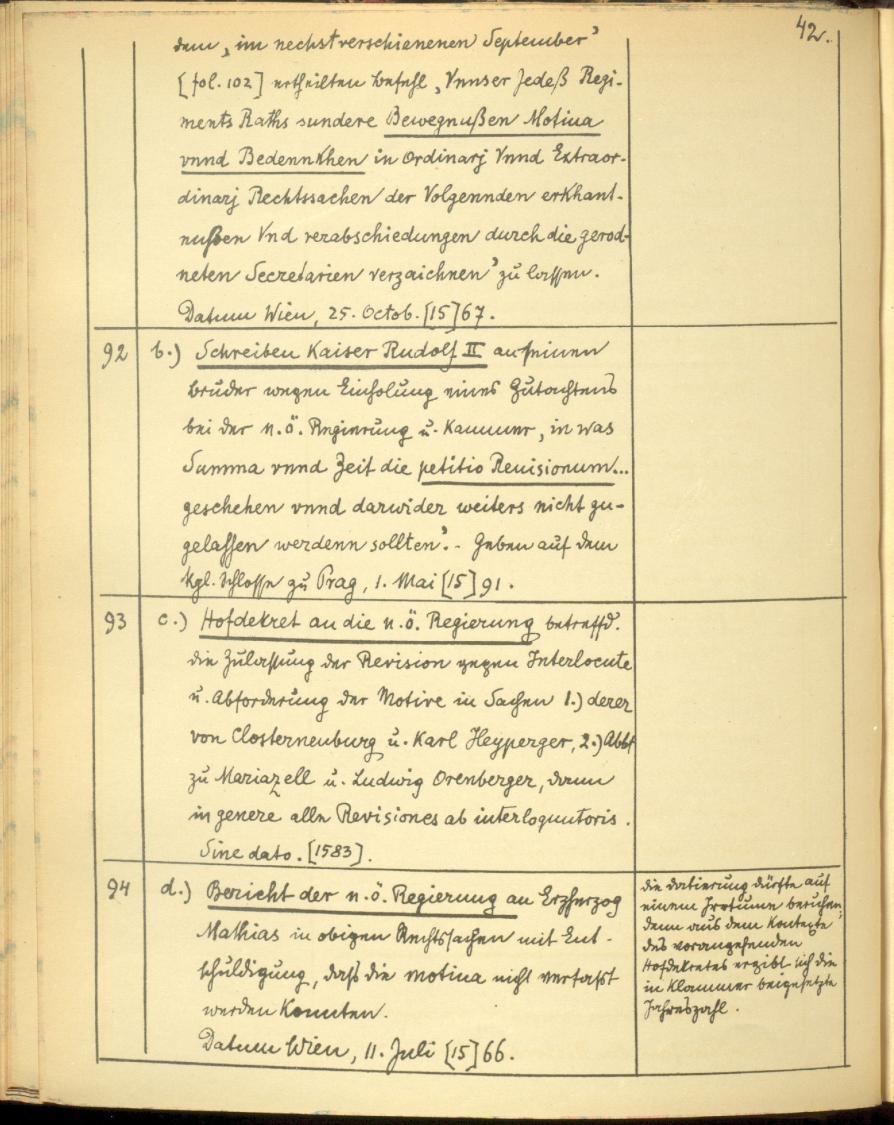 42.
dem ‚im nechstverschienenen September’
[fol. 102] ertheilten Befehl ‚Vnnser Jedeß Regi-
ments Raths sundere Bewegnußen Motiua
vnnd Bedennkhen in Ordinarj Vnnd Extraor-
dinarj Rechtssachen der Volgennden erkhant-
nußen Vnd verabschiedungen durch die gerod-
neten Secretarien verzaichnen’ zu lassen.
Datum Wien, 25. Octob. [15]67.
92 b.) Schreiben Kaiser Rudolf II an seinen
Bruder wegen Einholung eines Gutachtens
bei der n.ö. Regierung u. Kammer, in was
Summa vnnd Zeit die petitio Reuisionum...
geschehen vnnd darwider weiters nicht zu-
gelassen werdenn sollten’. - Geben auf dem
kgl. Schlosse zu Prag, 1. Mai [15]91.
93 c.) Hofdekret an die n.ö. Regierung betreffd.
die Zulassung der Revision gegen Interlocute
u. Abforderung der Motive in Sachen 1.) derer
von Closterneuburg u. Karl Heyperger, 2.) Abbt
zu Mariazell u. Ludwig Orenberger, dann
in genere alle Revisiones ab interloquutoris.
Sine dato. [1583].
94 d.) Bericht der n.ö. Regierung an Erzherzog
Mathias in obigen Rechtssachen mit Ent-
schuldigung, daß die Motiua nicht verfasst
werden konnten.
Datum Wien, 11. Juli [15]66.
die Datierung dürfte auf
einem Irrtume beruhen;
denn aus dem Kontexte
des vorangehenden
Hofdekretes ergibt sich die
in Klammer beigesetzte
Jahreszahl.